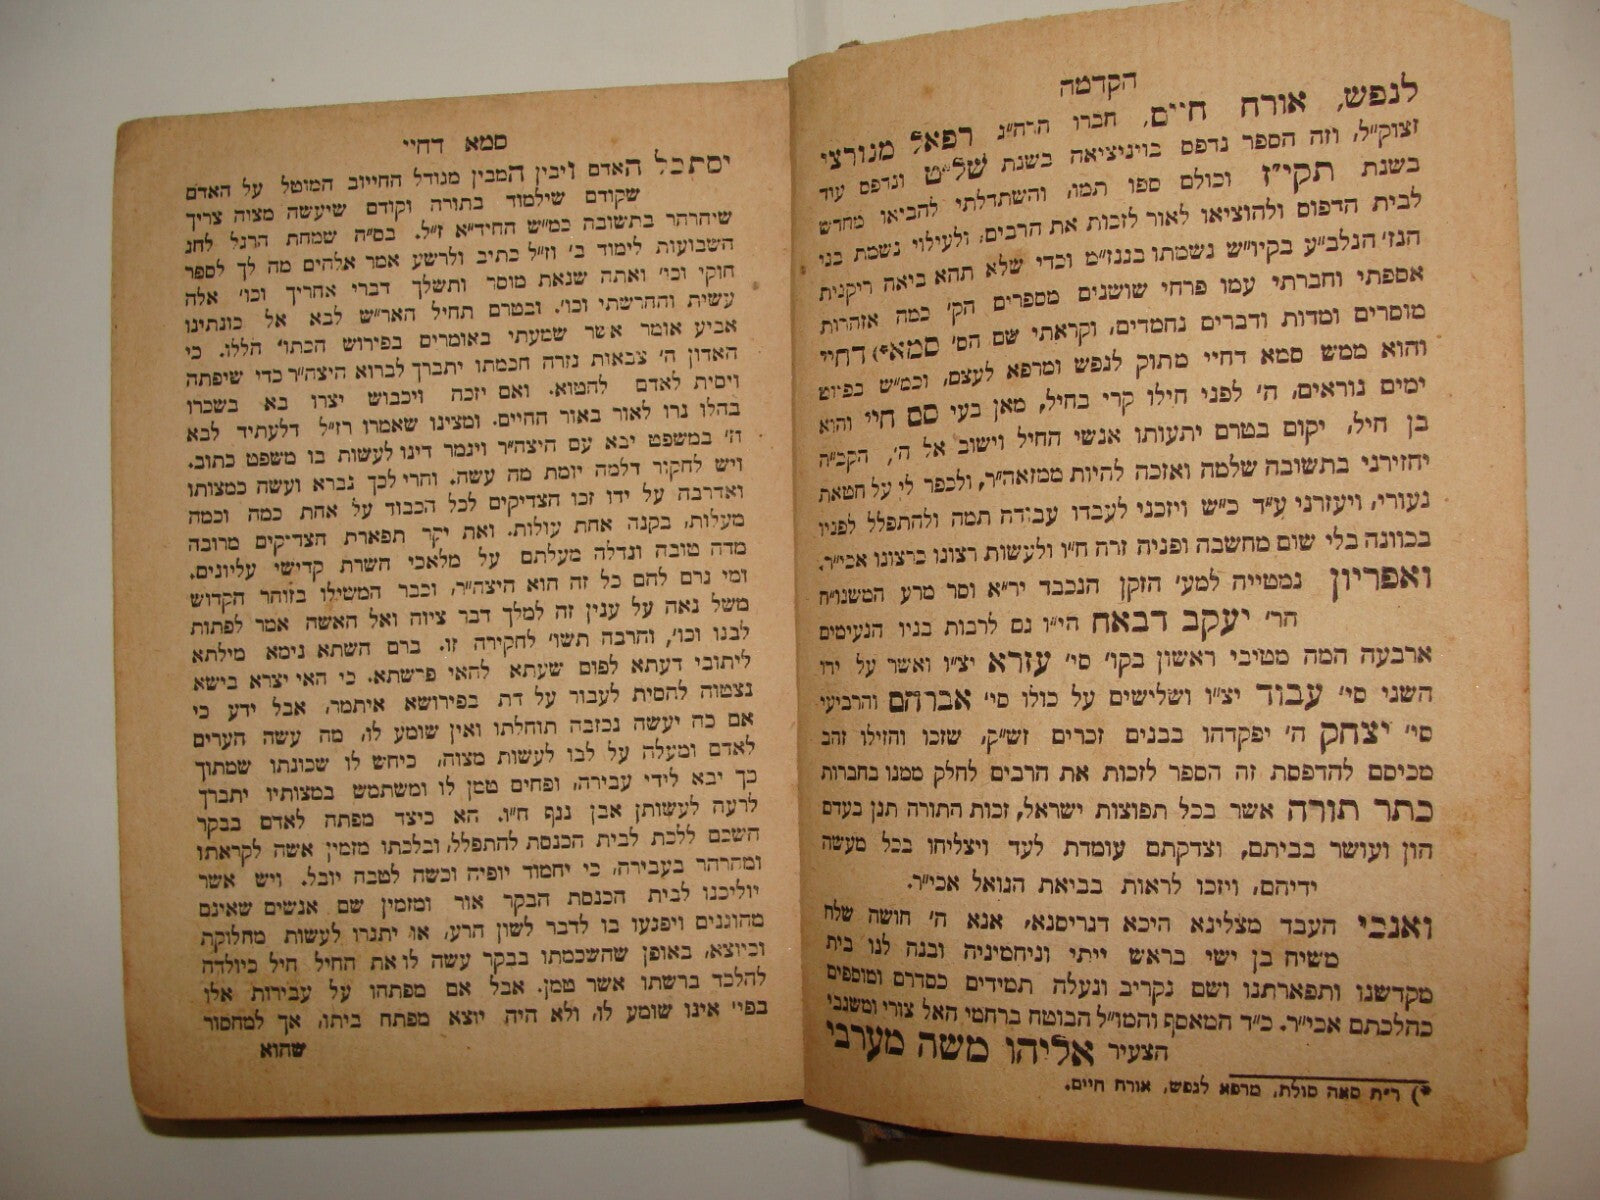 הקדמה
לנפש, אורח חיים, חברו הרה״ג רפאל מנורצי
זצוק״ל, וזה הספר נדפס בויניציאה בשנת של״ט ונדפס עוד
בשנת תקי״ז וכולם ספו תמו, והשתדלתי להביאו מחדש
לבית הדפוס ולהוציאו לאור לזכות את הרבים, ולעילוי נשמת בני
הנז׳ הנלב״ע בקיו״ש נשמתו בגנז״מ וכדי שלא תהא ביאה ריקנית
אספתי וחברתי עמו פרחי שושנים מספרים הק׳ כמה אזהרות
מוסרים ומדות ודברים נחמדים, וקראתי שם הס׳ סמא*) דחיי
והוא ממש סמא דחיי מתוק לנפש ומרפא לעצם, וכמ״ש בפיוט
ימים נוראים, ה׳ לפני חילו קרי בחיל, מאן בעי סם חיי והוא
בן חיל, יקום בטרם יתעותו אנשי החיל וישוב אל ה׳, הקב״ה
יחזירני בתשובה שלמה ואזכה להיות ממזאה״ר, ולכפר לי על חטאת
נעורי, ויעזרני ע״ד כ״ש ויזכני לעבדו עבודה תמה ולהתפלל לפניו
בכוונה בלי שום מחשבה ופניה זרה ח״ו ולעשות רצונו כרצונו אכי״ר.
ואפריון נמטייה למע׳ הזקן הנכבד יר״א וסר מרע המשנו״ח
חר׳ יעקב דבאח הי״ו גם לרבות בניו הנעימים
ארבעה המה מטיבי ראשון בקו׳ סי׳ עזרא יצ״ו ואשר על ידו
השני סי׳ עבוד יצ״ו ושלישים על כולו סי׳ אברהם והרביעי
סי׳ יצחק ה׳ יפקדהו בבנים זכרים זש״ק, שזכו והזילו זהב
מכיסם להדפסת זה הספר לזכות את הרבים לחלק ממנו בחברות
כתר תורה אשר בכל תפוצות ישראל, זכות התורה תגן בעדם
הון ועושר בביתם, וצדקתם עומדת לעד ויצליחו בכל מעשה
ידיהם, ויזכו לראות בביאת הגואל אכי״ר.
ואנכי העבד מצלינא היכא דגריסנא, אנא ה׳ חושה שלח
משיח בן ישי בראש ייתי וניחמיניה ובנה לנו בית
מקדשנו ותפארתנו ושם נקריב ונעלה תמידים כסדרם ומוספים
כהלכתם אכי״ר. כ״ד המאסף והמו״ל הבוטח ברחמי האל צורי ומשגבי
הצעיר אליהו משה מערבי
*) ר״ת סאה סולת, מרפא לנפש, אורח חיים.
סמא דחיי
יסתכל האדם ויבין המבין מגודל החייוב המוטל על האדם
שקודם שילמוד בתורה וקודם שיעשה מצוה צריך
שיהרהר בתשובה כמ״ש החיד״א ז״ל. בס״ה שמחת הרגל לחג
השבועות לימוד ב׳ וז״ל כתיב ולרשע אמר אלהים מה לך לספר
חוקי וכו׳ ואתה שנאת מוסר ותשלך דברי אחריך וכו׳ אלה
עשית והחרשתי וכו׳. ובטרם תחיל האר״ש לבא אל כונתינו
אביע אומר אשר שמעתי באומרים בפירוש הכתו׳ הללו. כי
האדון ה׳ צבאות גזרה חכמתו יתברך לברוא היצה״ר כדי שיפתה
ויסית לאדם להטוא. ואם יזכה ויכבוש יצרו בא בשכרו
בהלו נרו לאור באור החיים. ומצינו שאמרו רז״ל דלעתיד לבא
וז׳ במשפט יבא עם היצה״ר ויגמר דינו לעשות בו משפט כתוב.
ויש לחקור דלמה יומת מה עשה. והרי לכך נברא ועשה כמצותו
ואדרבה על ידו זכו הצדיקים לכל הכבוד על אחת כמה וכמה
מעלות, בקנה אחת עולות. ואת יקר תפארת הצדיקים מרובה
מדה טובה וגדלה מעלתם על מלאכי השרת קדישי עליונים.
ומי גרם להם כל זה הוא היצה״ר, וכבר המשילו בזוהר הקדוש
משל נאה על ענין זה למלך דבר ציוה ואל האשה אמר לפתות
לבנו וכו׳, והרבה תשו׳ לחקירה זו. ברם השתא נימא מילתא
ליתובי דעתא לפום שעתא להאי פרשתא. כי האי יצרא בישא
נצטוה להסית לעבור על דת בפירושא איתמר, אבל ידע כי
אם כה יעשה נכזבה תוחלתו ואין שומע לו, מה עשה הערים
לאדם ומעלה על לבו לעשות מצוה, כיחש לו שכונתו שמתוך
כך יבא לידי עבירה, ופחים טמן לו ומשתמש במצותיו יתברך
לרעה לעשותן אבן נגף ח״ו. הא כיצד מפתה לאדם בבקר
השכם ללכת לבית הכנסת להתפלל, ובלכתו מזמין אשה לקראתו
ומהרהר בעבירה, כי יחמוד יופיה וכשה לטבה יובל. ויש אשר
יוליכנו לבית הכנסת הבקר אור ומזמין שם אנשים שאינם
מהוגנים ויפגעו בו לדבר לשון הרע, או יתגרו לעשות מחלוקת
וכיוצא, באופן שהשכמתו בבקר עשה לו את החיל חיל כיולדה
להלכד ברשתו אשר טמן. אבל אם מפתהו על עבירות אלו
בפי׳ אינו שומע לו, ולא היה יוצא מפתח ביתו, אך למחסור
שהוא